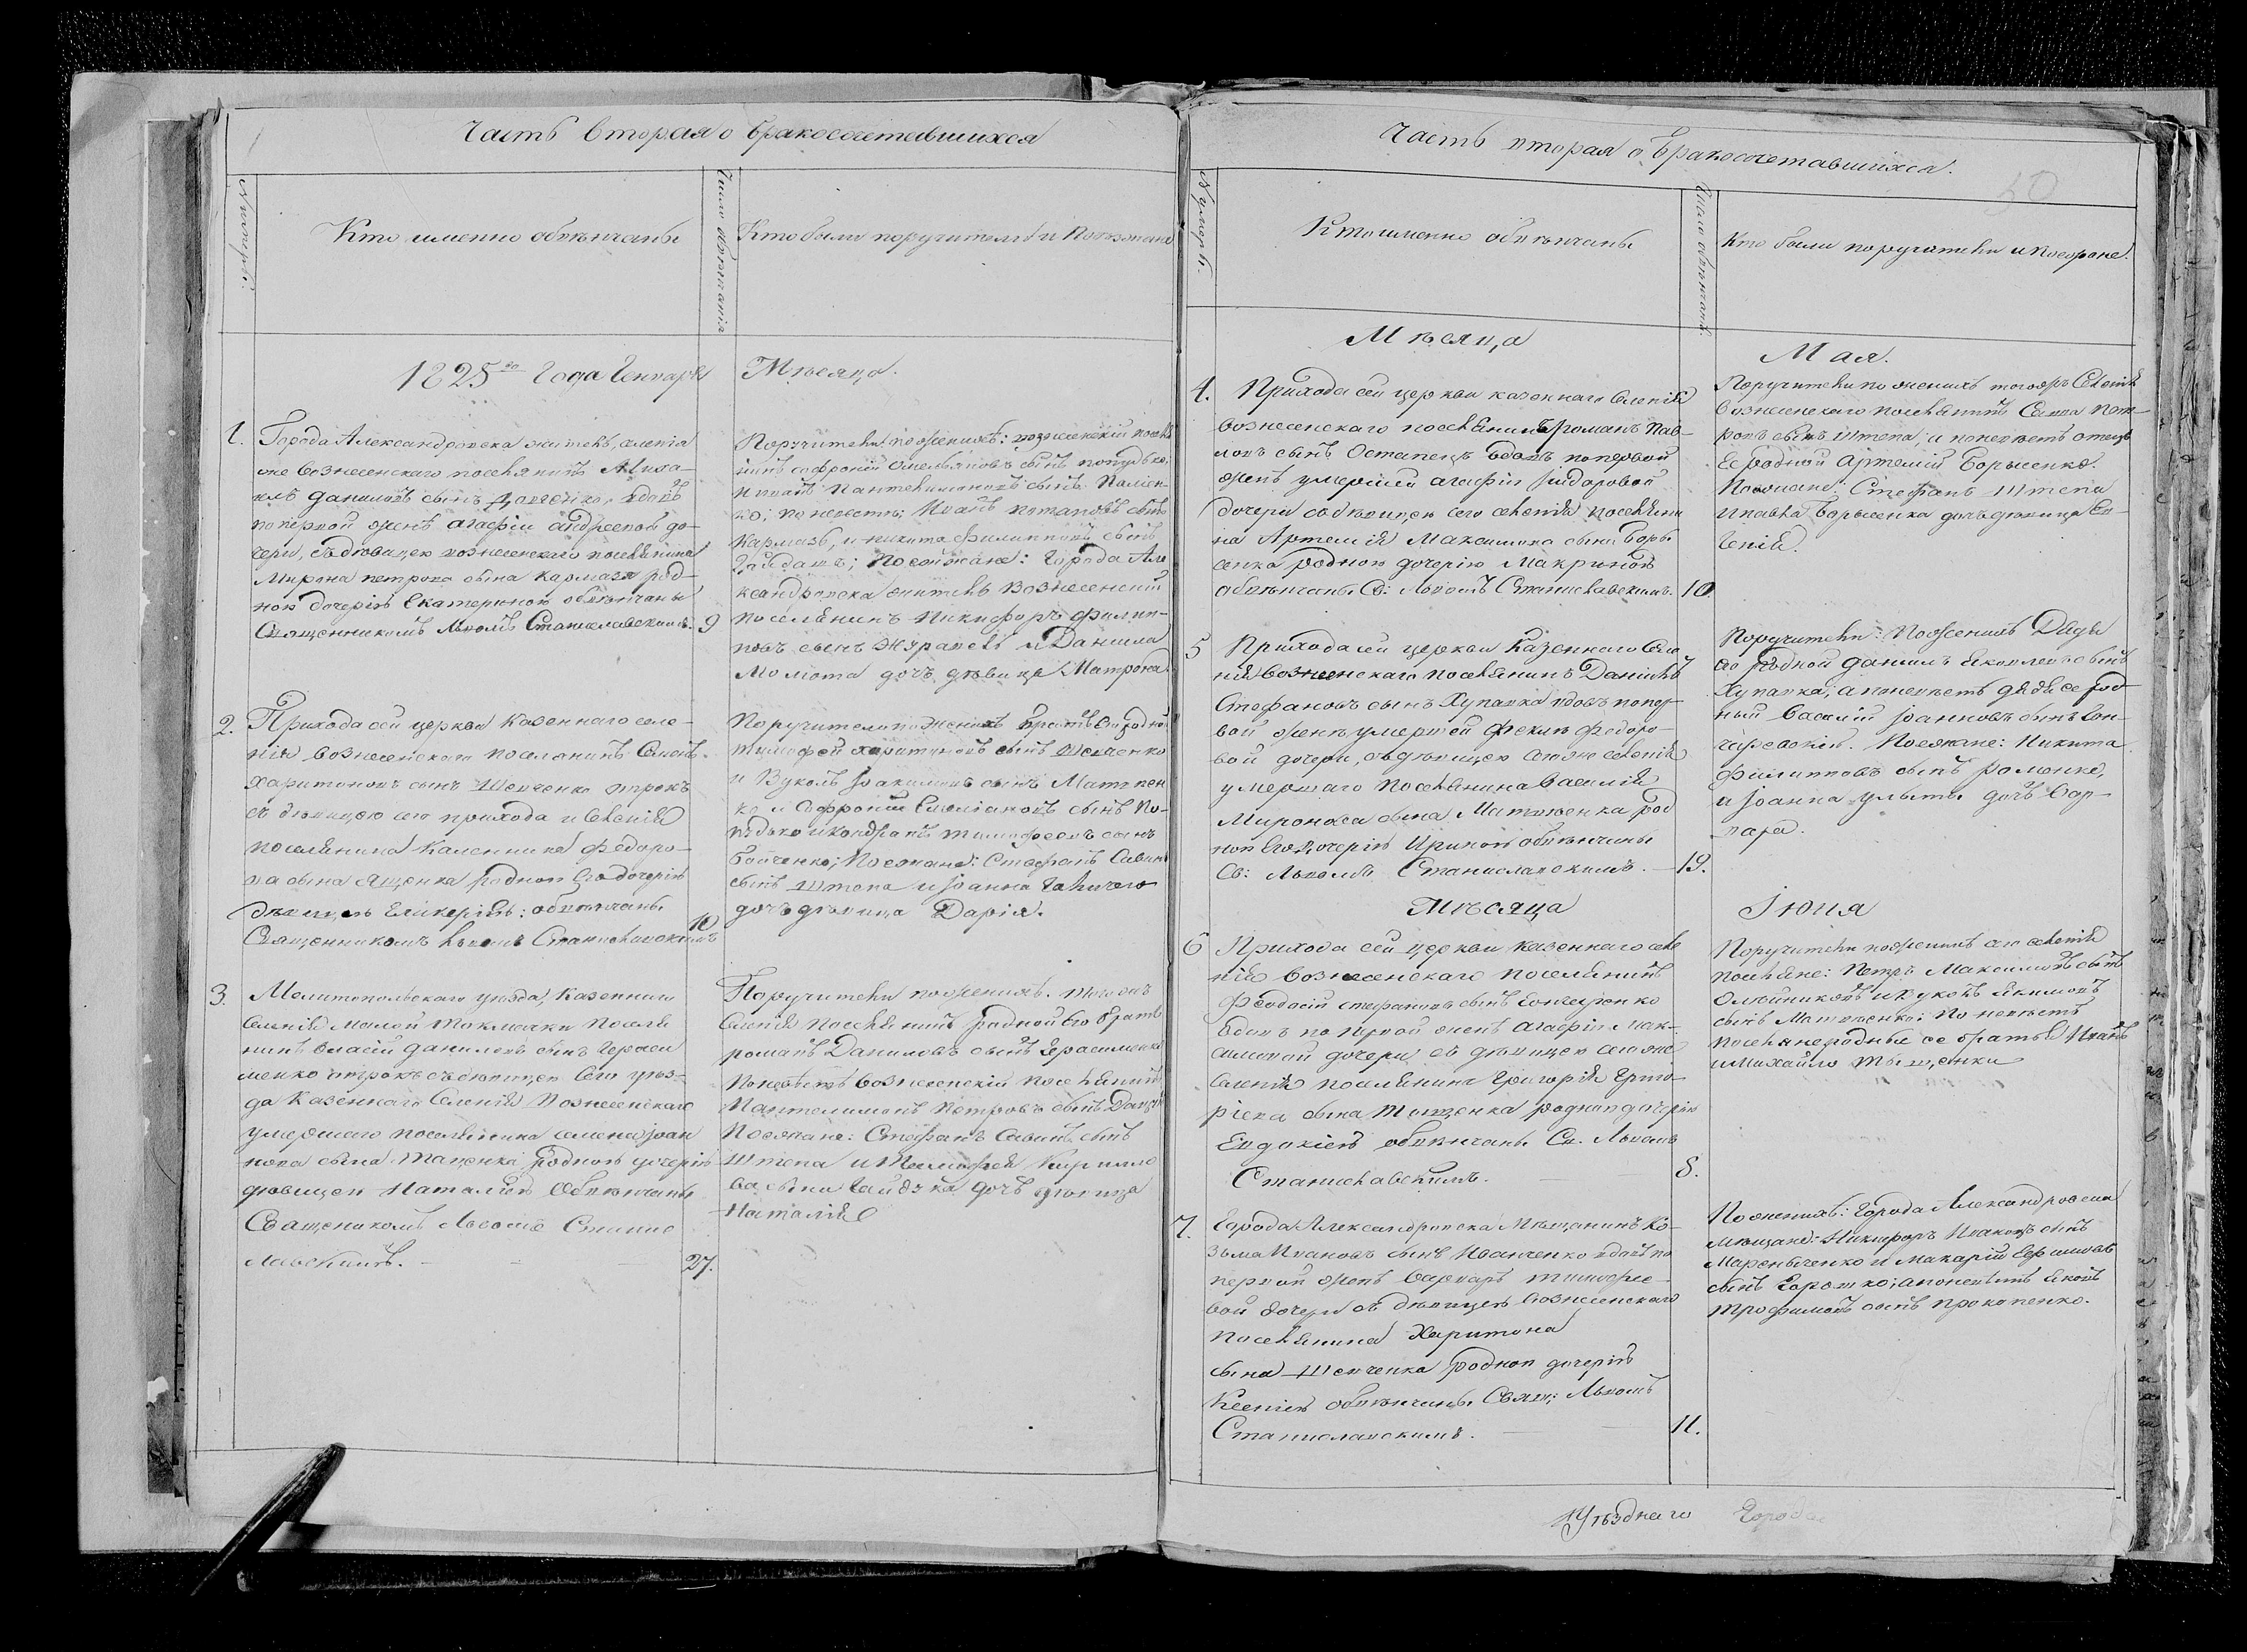 Часть вторая о бракосочетавшихся
Нумеръ.
Кто именно обвѣнчаны
Число обвѣнчанія
Кто были поручители и Поезжане
1825го Года Генваря Мѣсяца.
1. Города Александровска житель, селенія
же вознесенскаго поселянинъ Миха-
илъ Даниловъ сынъ вдовъ
по первой женѣ агафіи андреевой до-
чери, съ дѣвицею вознесенскаго поселянина
Мирона петрова сына Кармазя род-
ною дочерію Екатериною обвѣнчаны
Священникомъ Львомъ Станиславскимъ. 9
Поручители по женихѣ: вознесенскій поселя
нинъ софроній Омельяновъ сынъ
Иванъ Пантелимоновъ сынъ Палеен-
ко; по невестѣ; Иванъ потаповъ сынъ
Кармазь, и никита филиповъ сынъ
Гайдашъ; Поезжане: Города Але
ксандровска житель Вознесенскій
поселянинъ Никифоръ филип-
повъ сынъ Журавель и Данила
Момота дочь дѣвица Матрона.
2. Прихода сей церкви Казеннаго селе-
нія вознесенскаго поселянинъ
Харитоновъ сынъ Шевченко отрокъ
съ дѣвицею сего прихода и селенія
поселянина Каленника Федоро-
ва сына Ященка родною Его дочерію
дѣвицею Гликеріею: обвѣнчаны
Священникомъ Львомъ Станиславскимъ 10
Поручители по женихѣ братъ его родной
тимофей харитоновъ сынъ Шевченко
и Вуколъ Іоакимовъ сынъ Матвѣен
ко и Софроній Емеліановъ сынъ По-
пудько и кондратъ тимофеевъ сынъ
Бойченко; Поезжане: Стефанъ Савинъ
сынъ Штепа и Іоанна Галичего
дочь дѣвица Дарія.
3. Мелитопольскаго уѣзда, Казеннаго
Селенія Малой Токмачки Поселя
нинъ Власій Даниловъ сынъ Гераси
менко отрокъ съ дѣвицею Сего уѣз-
да Казеннаго Селенія Вознесенскаго
умершаго поселянина семена Іоан
нова сына Таценка родною дочерію
дѣвицею Наталіею Обвѣнчаны
Священикомъ Львомъ Станис
лавскимъ. 27.
Поручители по женихѣ. того жъ
Селенія поселянинъ родной Его братъ
романъ Даниловъ сынъ Герасименко
По невѣстѣ вознесенскій поселянинъ
Пантелимонъ Петровъ сынъ
Поезжане: Стефанъ Савинъ сынъ
Штепа и Тимофея Кирилло
ва сына Гайдука дочь дѣвица
Наталія
Часть вторая о бракосочетавшихся.
50
Нумеръ.
Кто именно обвѣнчаны
Число обвѣнчанія
Кто были поручители и Поезжане.
Мѣсяца Мая.
4. Прихода сей церкви казеннаго селенія
вознесенскаго поселянинъ романъ Пав-
ловъ сынъ Остапецъ вдовъ по первой
женѣ умершей агафіи сидоровой
дочери съ дѣвицею сего селенія поселяни
на Артемія Максимова сына Боры
сенка родною дочерію Макриною
обвѣнчаны Св: Львомъ Станиславскимъ. 10
Поручители по женихѣ тогожъ Селенія
вознесенскаго поселянинъ Савва пет-
ровъ сынъ Штепа; и по невѣстѣ отецъ
Ее родной Артемій Борысенко.
Поезжане: Стефанъ Штепа
и павла Борысенка дочь дѣвица Ев-
генія.
5 Прихода сей церкви Казеннаго Селе
нія вознесенскаго поселянинъ Даніилъ
Стефановъ сынъ Хупавка вдовъ попер-
вой женѣ умершей Феклѣ Федоро-
вой дочери, съ дѣвицею сего же селенія
умершаго поселянина Василія
Миронова сына Матвѣенка род
ною Его дочерію Ириною обвѣнчаны
Св: Львомъ Станиславскимъ. 19.
Поручители: По женихѣ Дядя
его родной Данилъ Яковлевъ сынъ
Хупавка, а по невѣстѣ дядя ее род
ный Василій Іоанновъ сынъ Гон-
чаревскій. Поезжане: Никита
филипповъ сынъ романко,
и Іоанна улыты дочь Вар-
вара.
Мѣсяца Іюня
6 Прихода сей церкви казеннаго селе
нія вознесенскаго поселянинъ
Феодосій стефановъ сынъ Гончаренко
вдовъ по первой женѣ агафіи Мак-
симовой дочери съ дѣвицею сего же
Селенія поселянина Григорія Григо-
ріева сына Тищенка родною дочерію
Евдокіею обвѣнчаны Св. Львомъ
Станиславскимъ. 8.
Поручители по женихѣ сего селенія
поселяне: Петръ Максимовъ сынъ
Олейниковъ и Вуколъ Якимовъ
сынъ Матвѣенко; По невѣстѣ
поселяне родные ее братья Иванъ
и Михайло Тыщенки
7. Города Александровска Мѣщанинъ Ко-
зьма Ивановъ сынъ Иванченко вдовъ по
первой женѣ варварѣ тимофее-
вой дочери съ дѣвицею Вознесенскаго
поселянина Харитона
сына Шевченка родною дочерію
Ксеніею обвѣнчаны Свящ; Львомъ
Станиславскимъ. 11.
По женихѣ: Города Александровска
мѣщане: Никифоръ Ивановъ сынъ
Мареныченко и Макарій Ефимовъ
сынъ Горошко; а по невѣстѣ Яковъ
Трофимовъ сынъ прокопенко.
Уѣзднаго Города